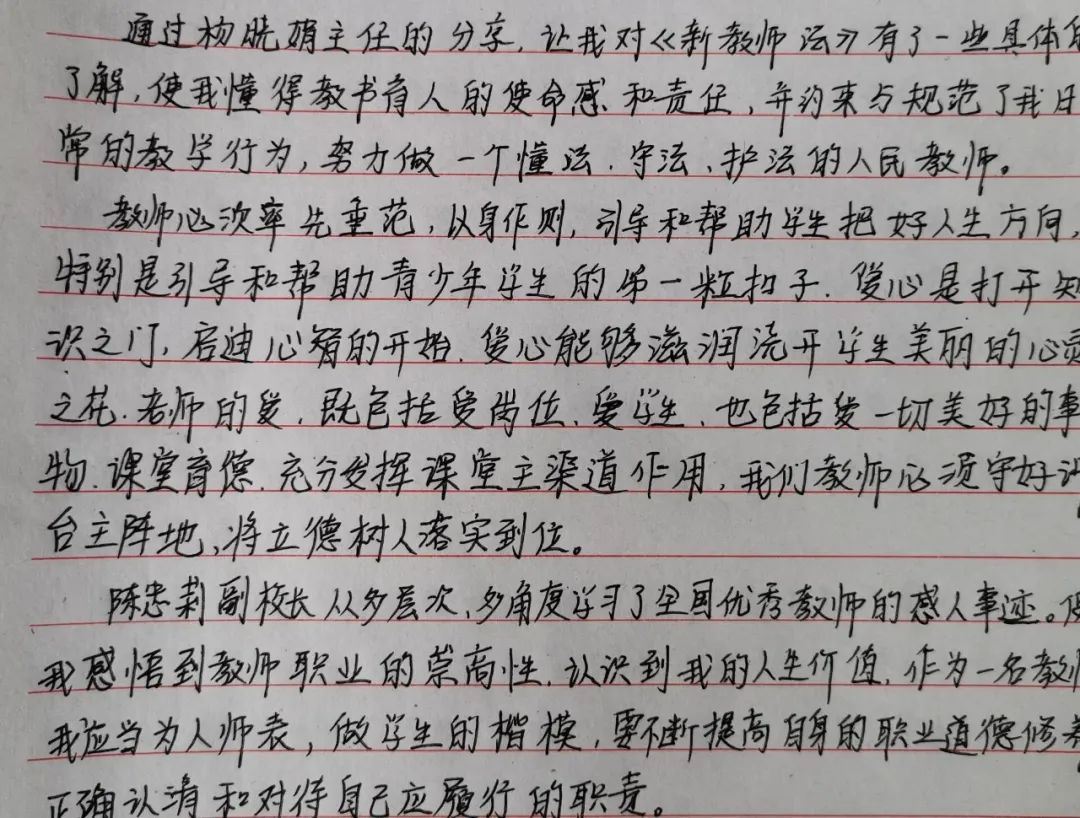 通过杨晓娟主任的分享,让我对《新教师法》有了一些具体的
了解,使我懂得教书育人的使命感和责任,并约束与规范了我日
常的教学行为,努力做一个懂法、守法、护法的人民教师。
教师必次率先垂范,以身作则,引导和帮助学生把好人生方向,
特别是引导和帮助青少年学生的第一粒扣子.爱心是打开知
识之门,启迪心智的开始.爱心能够滋润浇开学生美丽的心灵
之花.老师的爱,既包括爱岗位、爱学生,也包括爱一切美好的事
物.课堂育德.充分发挥课堂主渠道作用,我们教师必须守好讲
台主阵地,将立德树人落实到位。
陈忠莉副校长从多层次,多角度学习了全国优秀教师的感人事迹。使
我感悟到教师职业的崇高性.认识到我的人生价值.作为一名教师
我应当为人师表,做学生的楷模,要不断提高自身的职业道德修养
正确认清和对待自己应履行的职责。